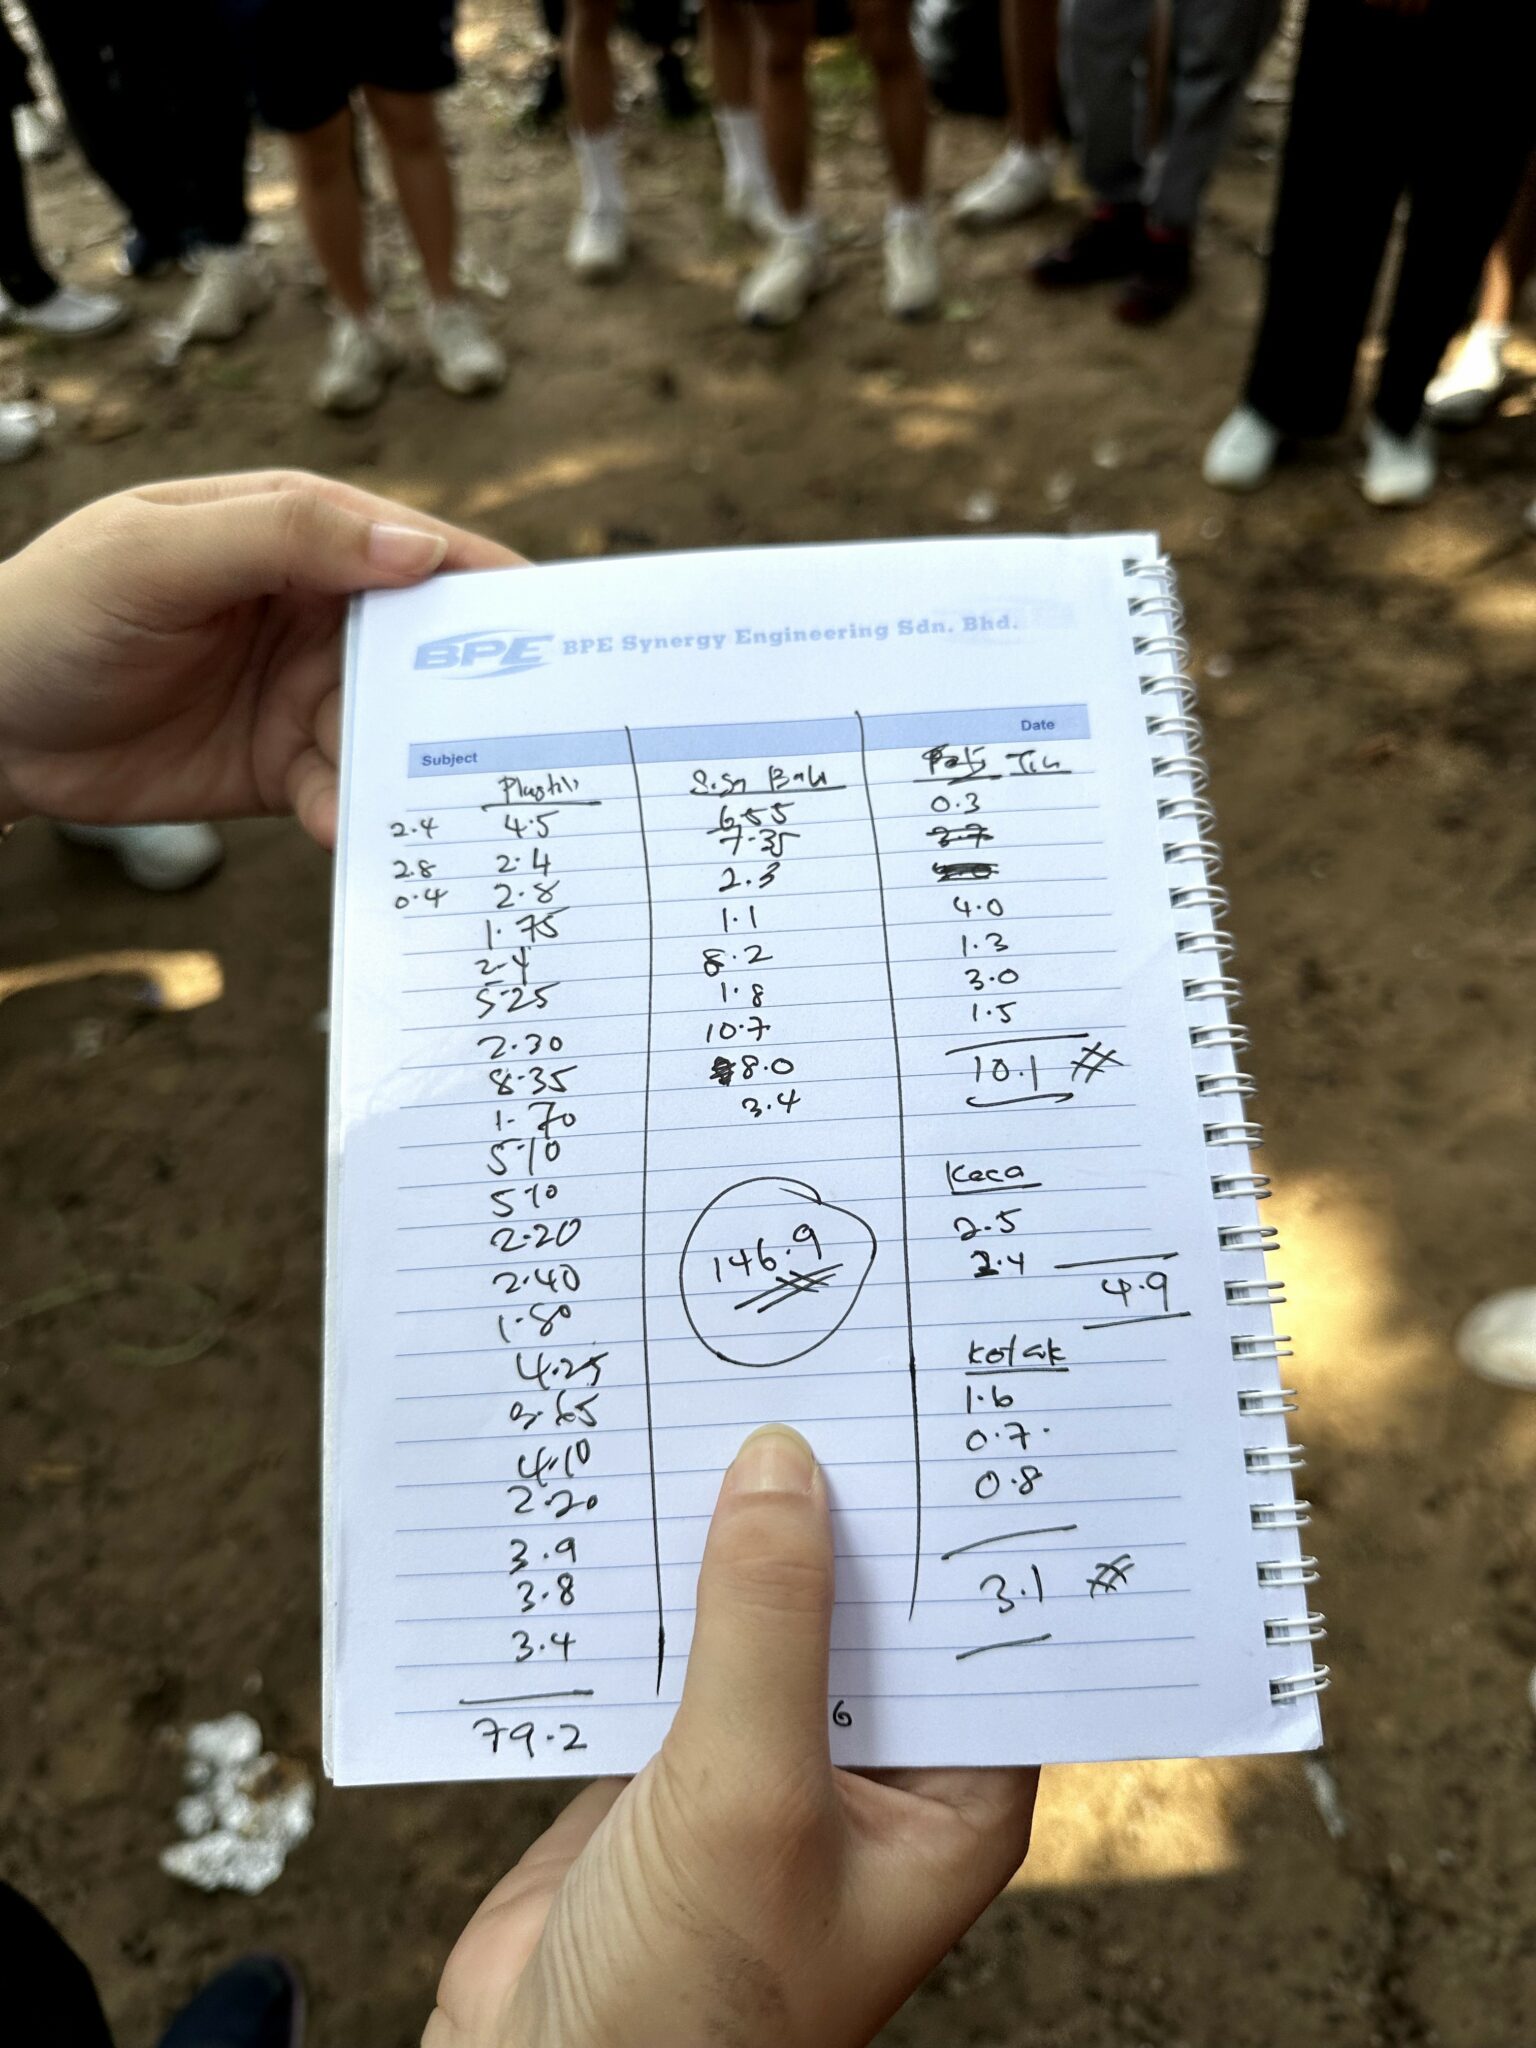 BPE BPE Synergy Engineering Sdn. Bhd.
Subject
Date
Plastik
2.4
2.8
0.4
4.5
2.4
2.8
1.75
2.4
5.25
2.30
8.35
1.70
5.10
5.10
2.20
2.40
1.80
4.25
3.65
4.10
2.20
3.9
3.8
3.4
79.2
6.55
7.35
2.3
1.1
8.2
1.8
10.7
8.0
3.4
146.9
Tin
0.3
3.7
4.0
1.3
3.0
1.5
10.1 #
Kaca
2.5
2.4
4.9
Kotak
1.6
0.7
0.8
3.1 #
6